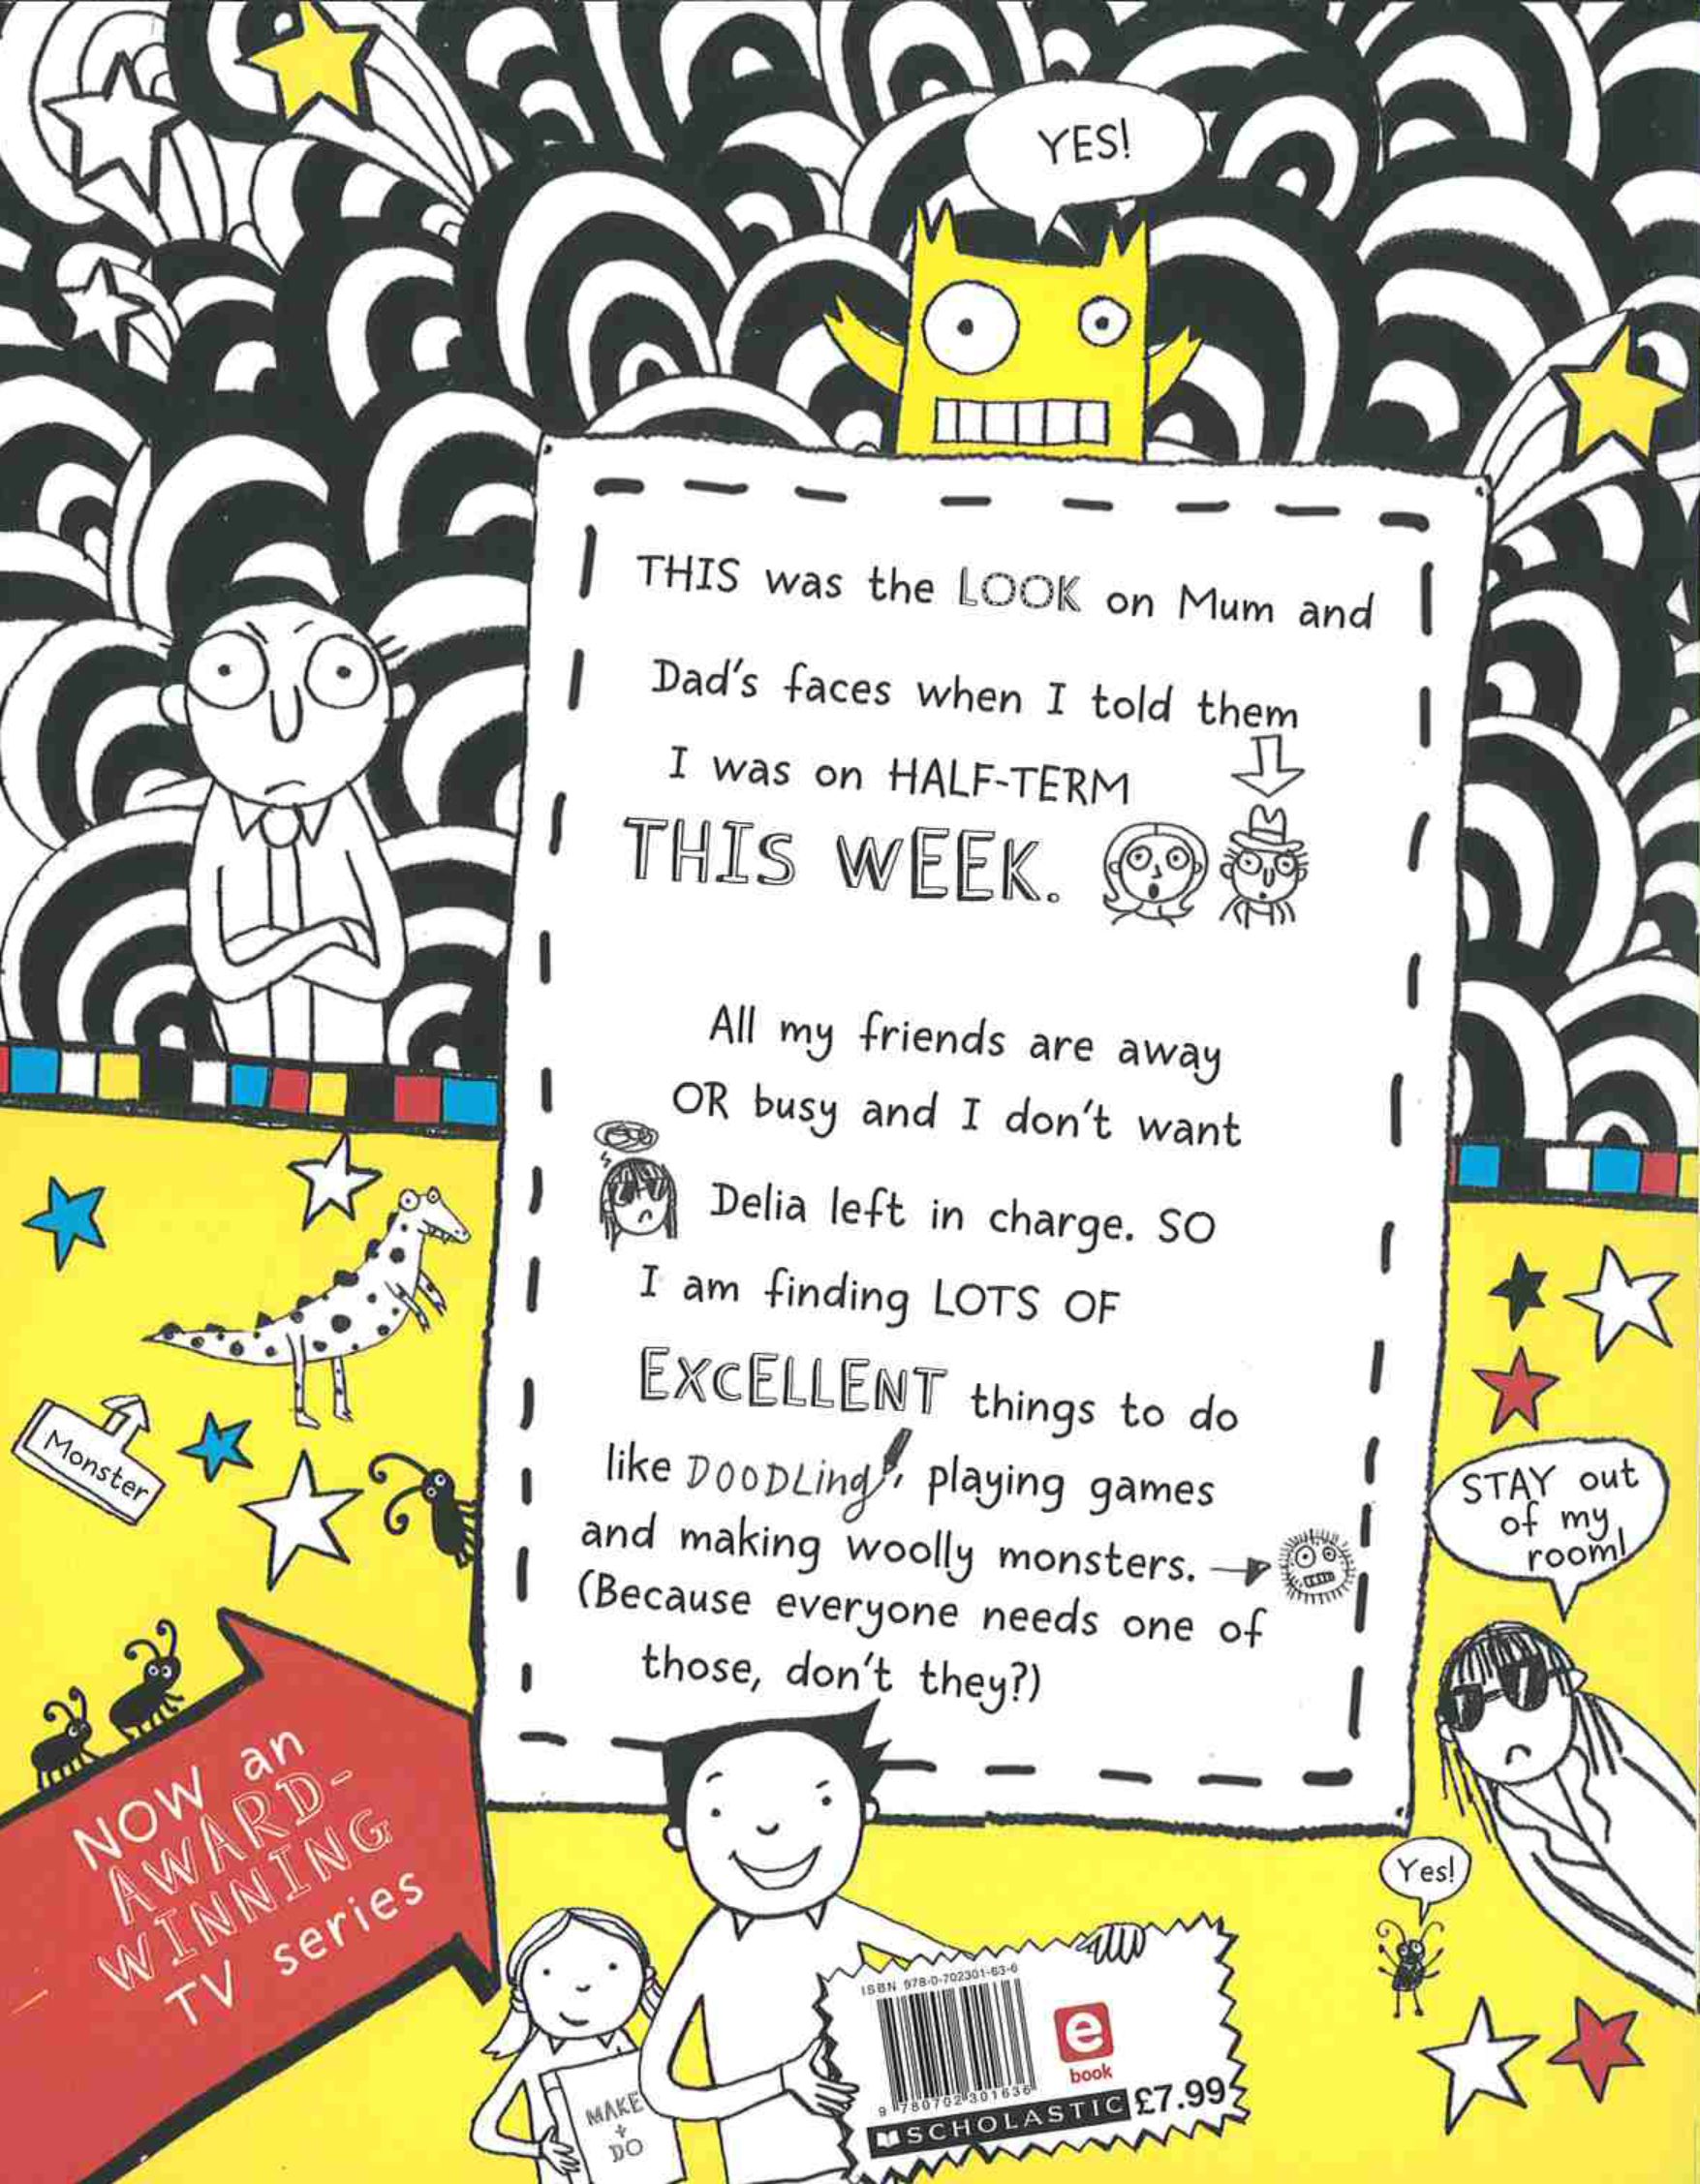 YES!
THIS was the LOOK on Mum and
Dad's faces when I told them
I was on HALF-TERM
THIS WEEK.
All my friends are away
OR busy and I don't want
Delia left in charge. SO
I am finding LOTS OF
EXCELLENT things to do
like DOODLing, playing games
and making woolly monsters.
(Because everyone needs one of
those, don't they?)
Monster
STAY out
of my
room!
NOW an
AWARD-
WINNING
TV series
Yes!
MAKE
+
DO
ISBN 978-0-702301-63-6
9 780702 301636
e
book
SCHOLASTIC £7.99